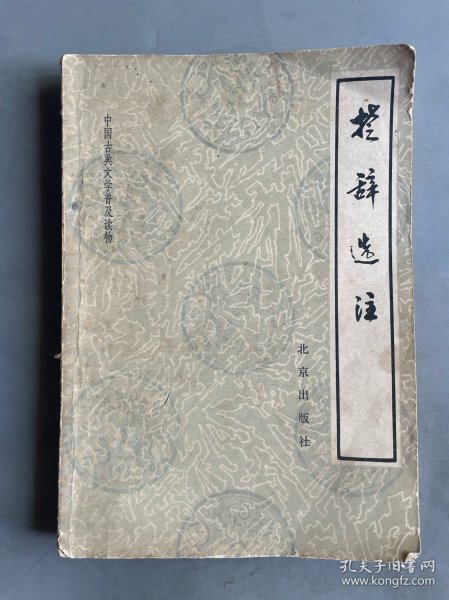 楚辞选注
北京出版社
中国古典文学普及读物
孔夫子旧书网
www.kongfz.com